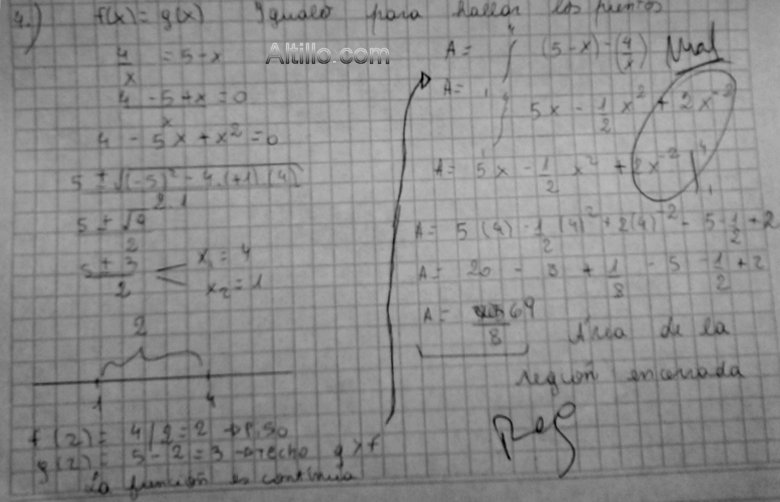 4.) f(x) = g(x) Igualo para hallar los puntos
Altillo.com
4/x = 5-x
4/x - 5 + x = 0
4 - 5x + x² = 0
5 ± √(-5)² - 4.(+1).(4) / 2.1
5 ± √9 / 2
5 ± 3 / 2 < x₁ = 4
x₂ = 1
2
1 4
f(2) = 4/2 = 2 → Piso
g(2) = 5 - 2 = 3 → techo g > f
La función es continua
A = ∫ (5-x) - (4/x) Mal
A = ∫ 5x - 1/2 x² + 2x⁻²
A = 5x - 1/2 x² + 2x⁻² |
A = 5(4) - 1/2 (4)² + 2(4)⁻² - 5 - 1/2 + 2
A = 20 - 8 + 1/8 - 5 - 1/2 + 2
A = 69/8 Área de la
región encerrada
Reg